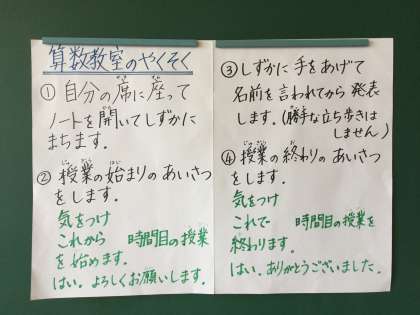 算数教室のやくそく
① 自分の席に座って
ノートを開いてしずかに
まちます.
② 授業の始まりのあいさつ
をします.
気をつけ
これから 時間目の授業
を始めます.
はい. よろしくお願いします.
③ しずかに手をあげて
名前を言われてから発表
します.(勝手な立ち歩きは
しません)
④ 授業の終わりのあいさつ
をします.
気をつけ
これで 時間目の授業を
終わります.
はい. ありがとうございました.